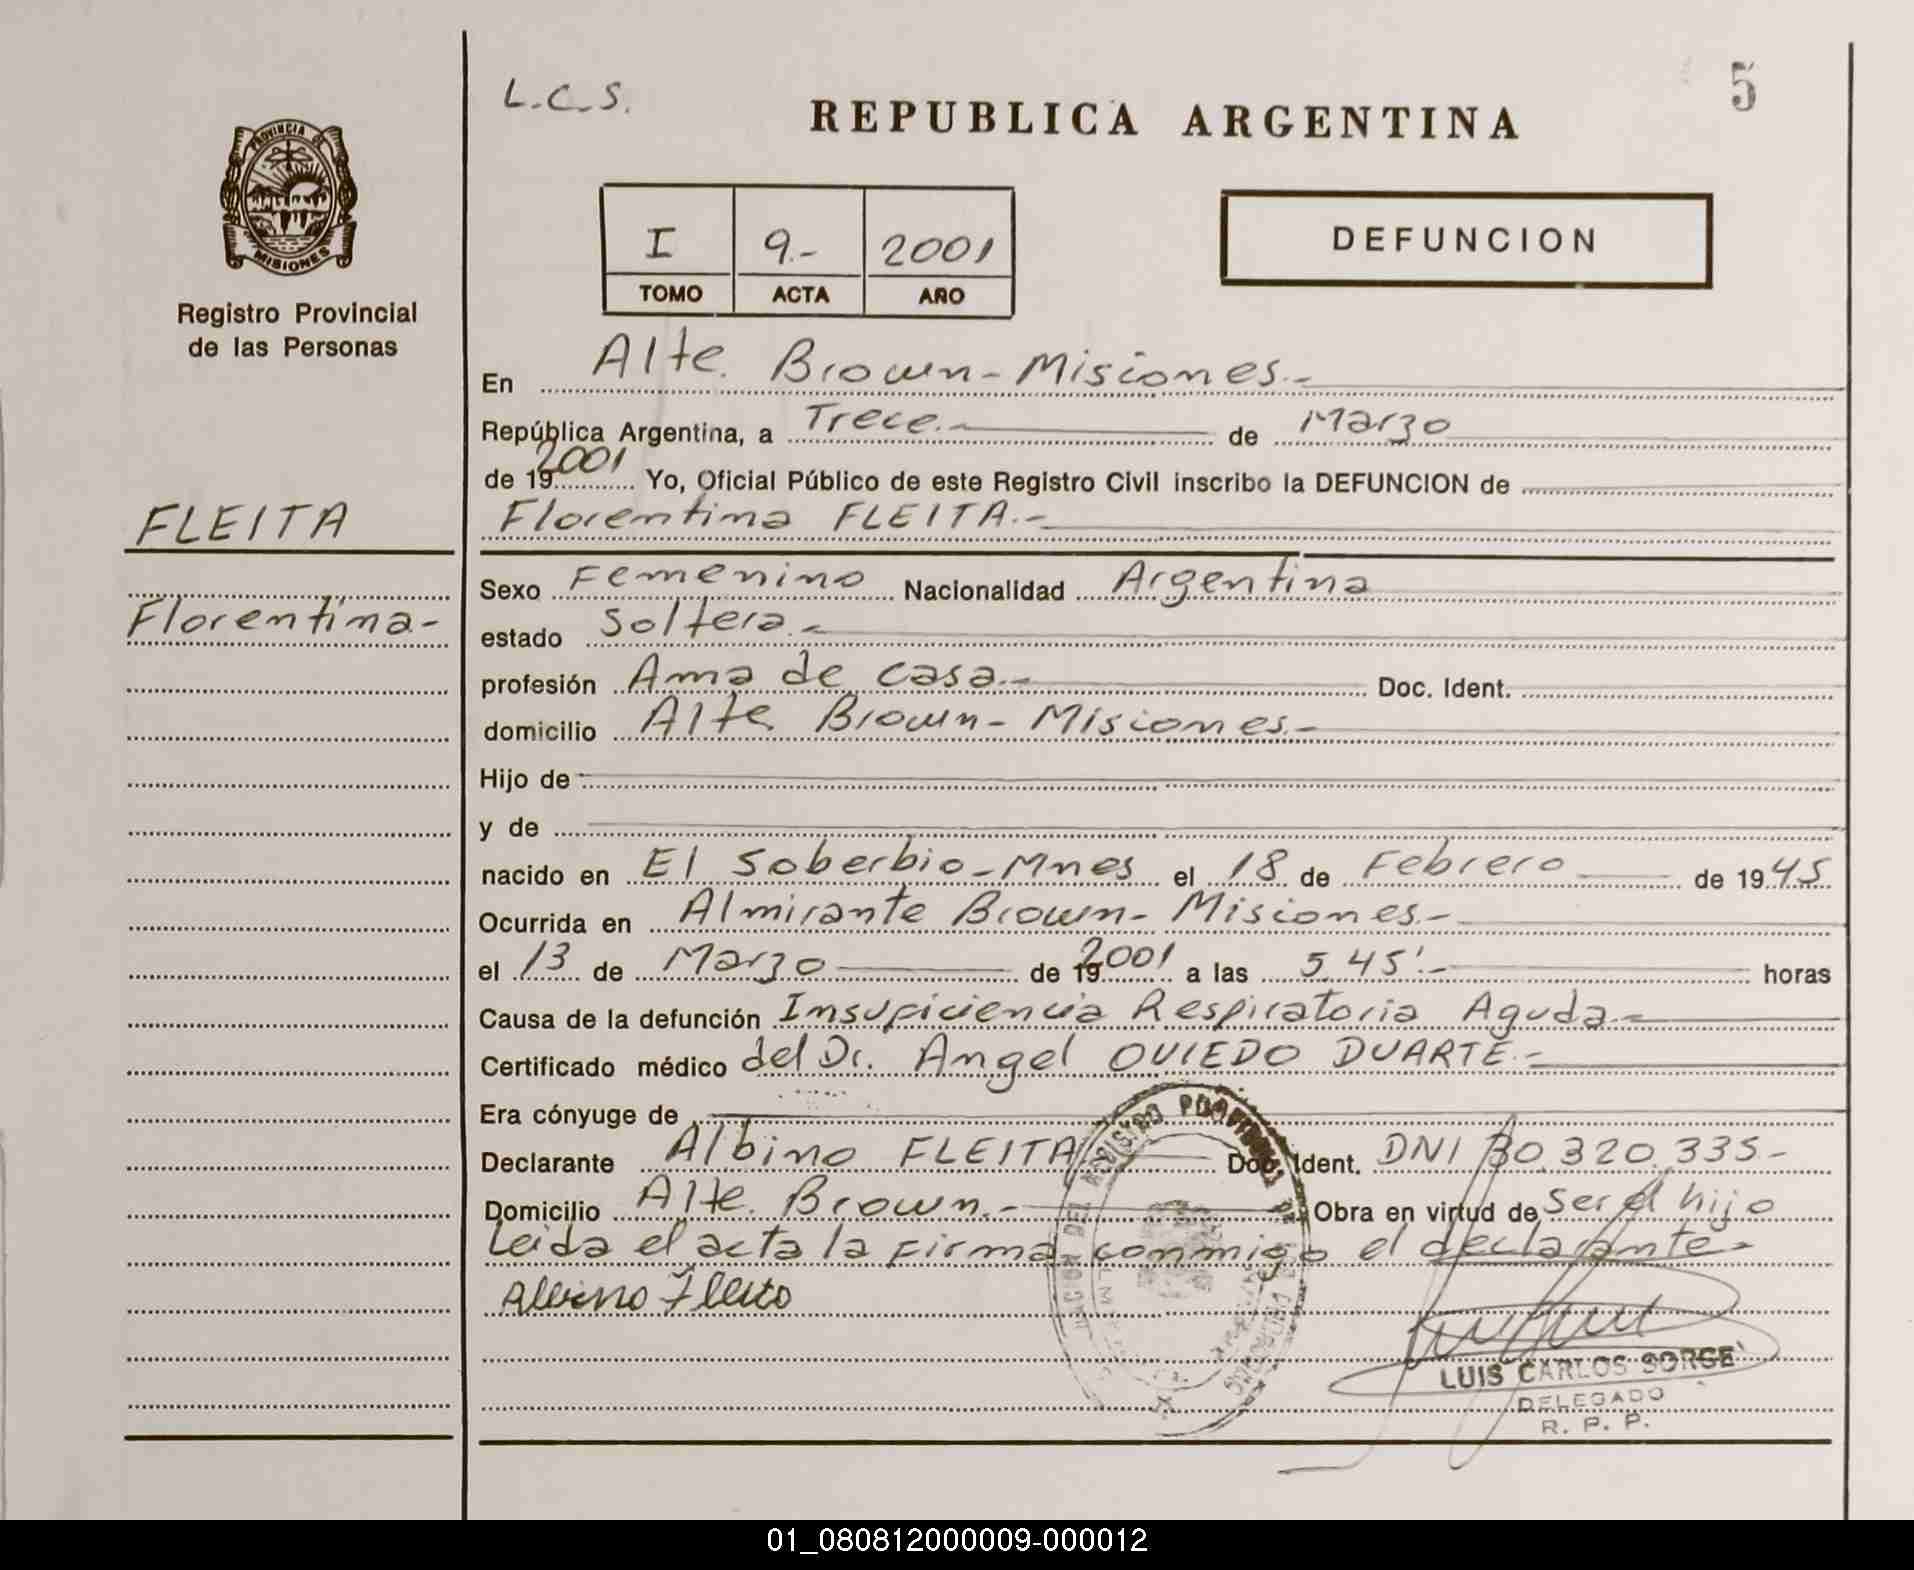 L.C.S.
5
REPUBLICA ARGENTINA
PROVINCIA DE
MISIONES
I 9.- 2001
TOMO ACTA AÑO
DEFUNCION
Registro Provincial
de las Personas
En Alte. Brown - Misiones.-
República Argentina, a Trece.- de Marzo
de 19 2001 Yo, Oficial Público de este Registro Civil inscribo la DEFUNCION de
FLEITA
Florentina FLEITA.-
Florentina-
Sexo Femenino Nacionalidad Argentina
estado Soltera.-
profesión Ama de casa.- Doc. Ident.
domicilio Alte Brown - Misiones.-
Hijo de
y de
nacido en El Soberbio - Mnes el 18 de Febrero de 1945
Ocurrida en Almirante Brown - Misiones.-
el 13 de Marzo de 19 2001 a las 5 45'.- horas
Causa de la defunción Insuficiencia Respiratoria Aguda-
Certificado médico del Dr. Angel OVIEDO DUARTE.-
Era cónyuge de
Declarante Albino FLEITA Doc. Ident. DNI 30.320.335-
Domicilio Alte. Brown.- Obra en virtud de Ser el hijo
Leida el acta la firma conmigo el declarante-
Albino Fleita
LUIS CARLOS SORGE
DELEGADO
R. P. P.
01_080812000009-000012